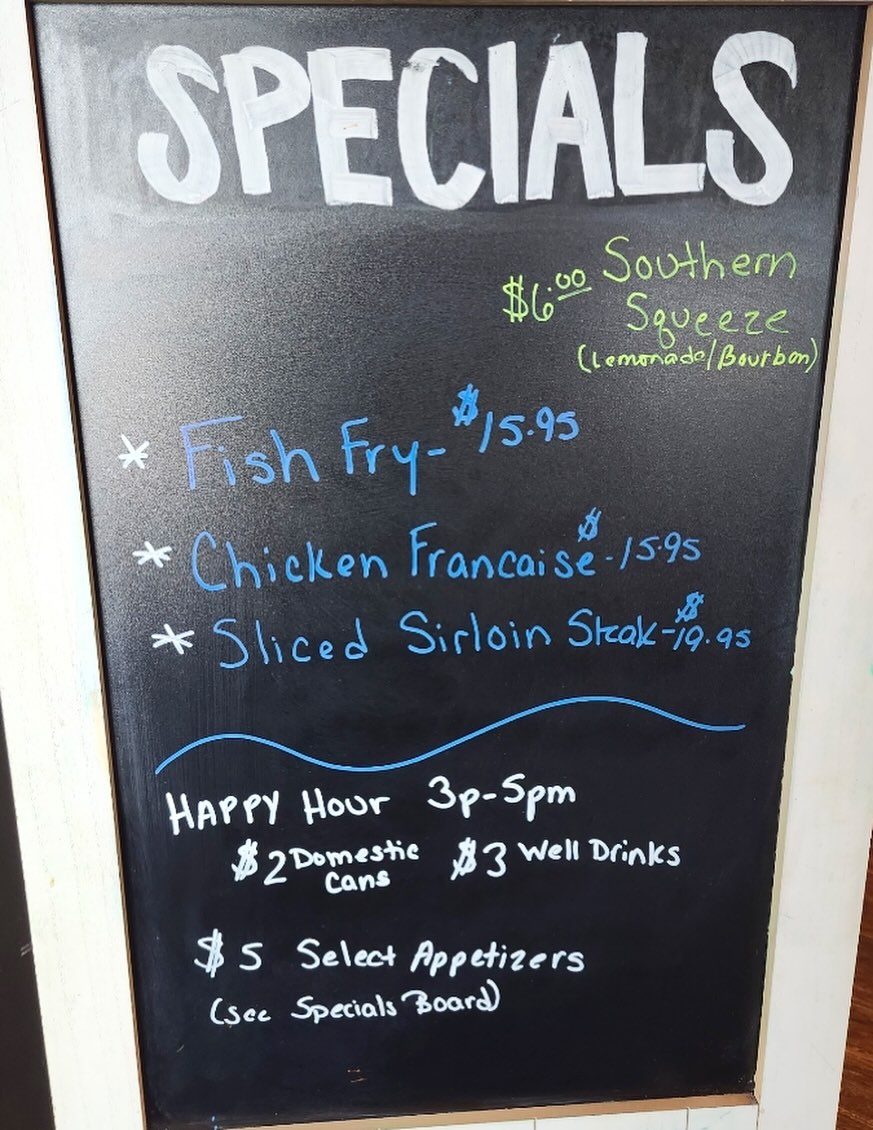 SPECIALS
$6.00 Southern
Squeeze
(Lemonade/Bourbon)
* Fish Fry-$15.95
* Chicken Francaise-$15.95
* Sliced Sirloin Steak-$19.95
HAPPY HOUR 3p-5pm
$2 Domestic $3 Well Drinks
Cans
$5 Select Appetizers
(see Specials Board)